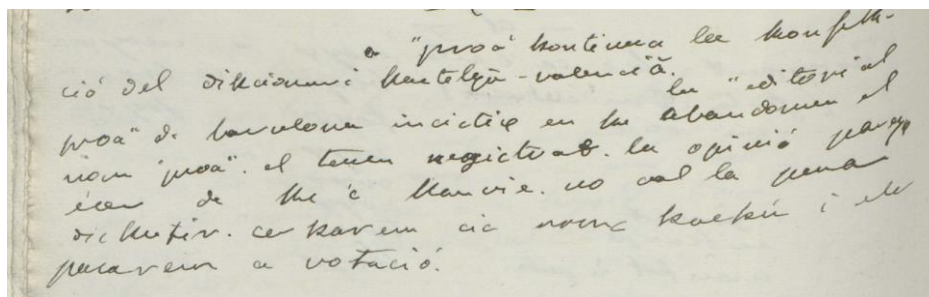 a "proa" kontinua la konfek-
ció del dikcionari kastellà-valencià.
la "editorial
proa" de barcelona incistix en ke abandonem el
nom "proa". el tenen registrat. la opinió pareix
ècer de ke é kanvie. no val la pena
dickutir. cerkarem cic noms kuckú i els
pacarem a votació.